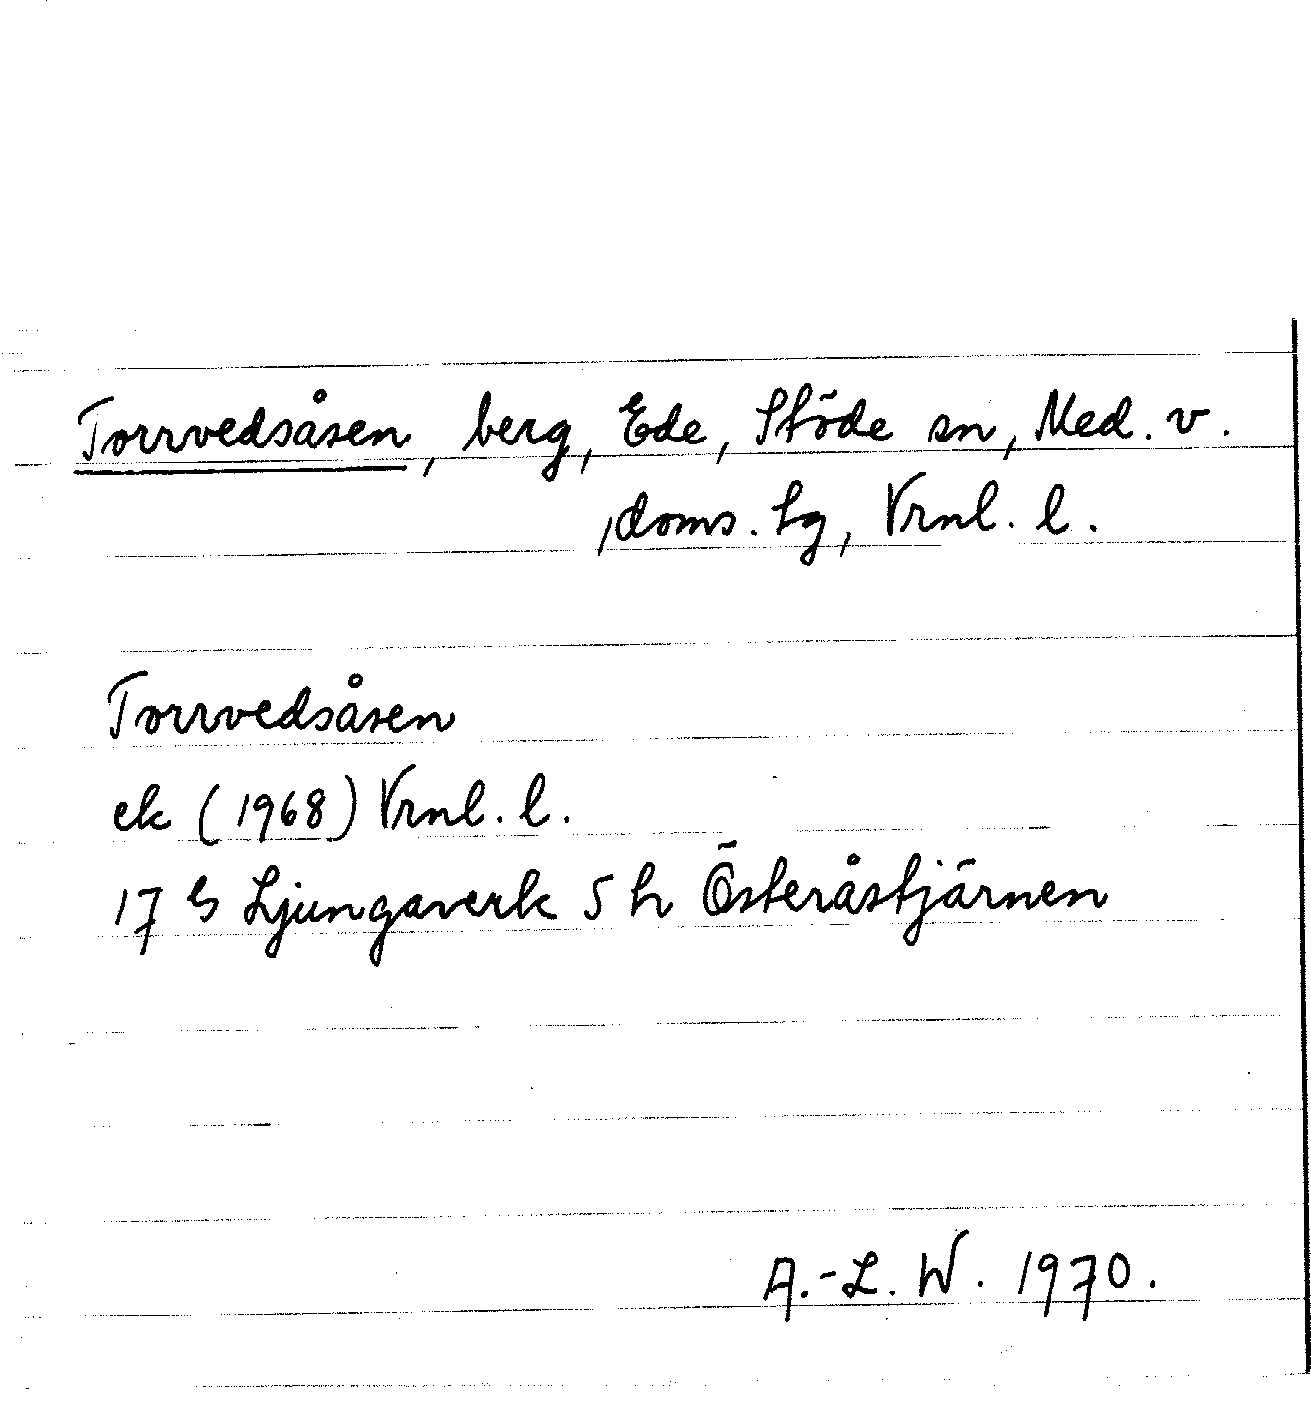 Torrvedsåsen, berg, Ede, Stöde sn, Med. v.
, doms. hg, Vrnl. l.
Torrvedsåsen
ek (1968) Vrnl. l.
17 G Ljungaverk 5 h Österåstjärnen
A.-L. W. 1970.